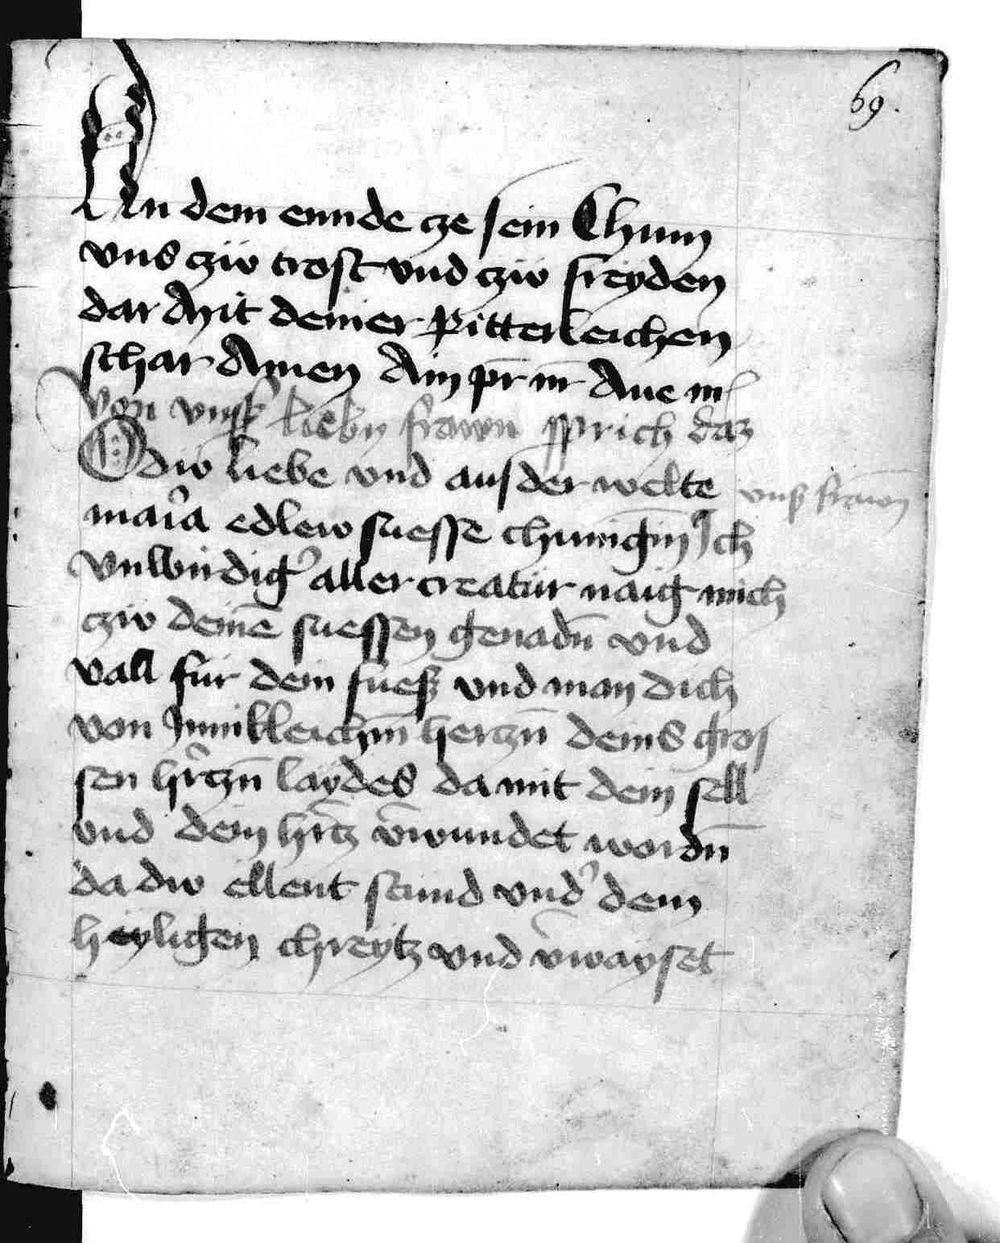 69.
An dem ennde cze sein Chum
vns cziw trost vnd cziw freyden
dar Mit deiner Pitterleichen
schar Amen Ain pr̄ nr̄ Aue m
Von vnsß lieby frawn sprich daz
O diw liebe vnd auserwelte vnß frawn
maia edlew suesse chunigin̄ Ich
vnwirdig aller creatur naig mich
cziw deinē suessen genadn̄ vnd
vall fur dein fuesz vnd man dich
von Jnnikleichn̄ herczn̄ deins gros
sen hr̄czn̄ laydes da mit dein sell
vnd dein hr̄cz v̄wundet wordn̄
da diw ellent stund vnd' dem
heyligen chreytz vnd v̄wayset